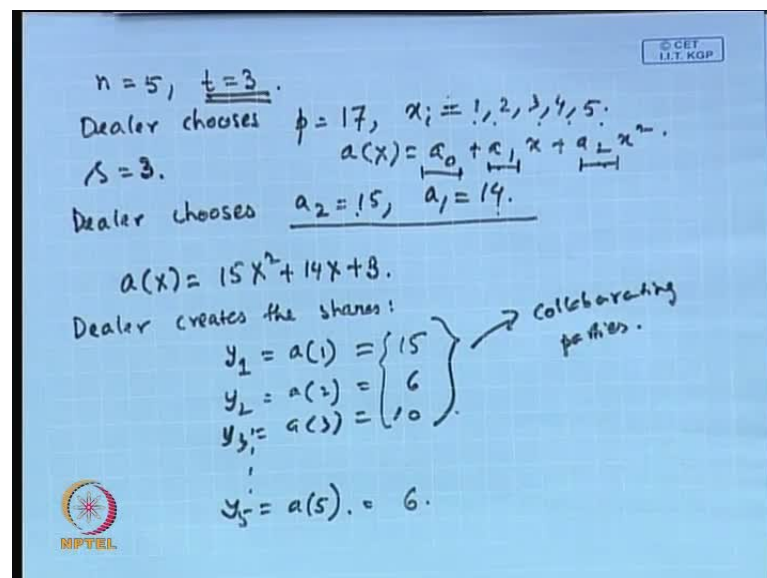 © CET
I.I.T. KGP
n = 5, t = 3.
Dealer chooses p = 17, xi = 1, 2, 3, 4, 5.
s = 3. a(x) = a0 + a1 x + a2 x².
Dealer chooses a2 = 15, a1 = 14.
a(x) = 15x² + 14x + 3.
Dealer creates the shares:
y1 = a(1) = {15
y2 = a(2) = 6
y3 = a(3) = 10} → collaborating parties.
y5 = a(5). = 6.
NPTEL